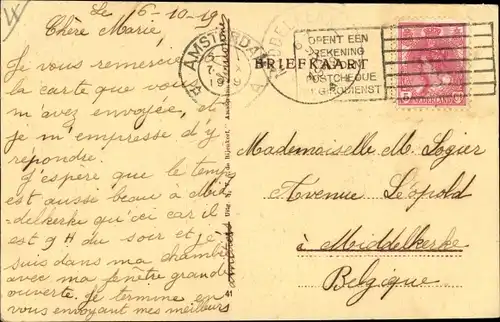 Le 6-10-19
Chère Marie,
Je vous remercie
la carte que vous
m'avez envoyée, et
je m'empresse d'y
répondre.
J'espère que le temps
est aussi beau à Mid
-delkerke qu'ici car il
est 9 H du soir et je
suis dans ma chambre
avec ma fenêtre grande
ouverte. Je termine en
vous envoyant mes meilleurs
amitiés
AMSTERDAM
BRIEFKAART
OPENT EEN
REKENING
POSTCHEQUE
GIRODIENST
NEDERLAND
5
Mademoiselle M. Logier
Avenue Léopold
à Middelkerke
Belgique